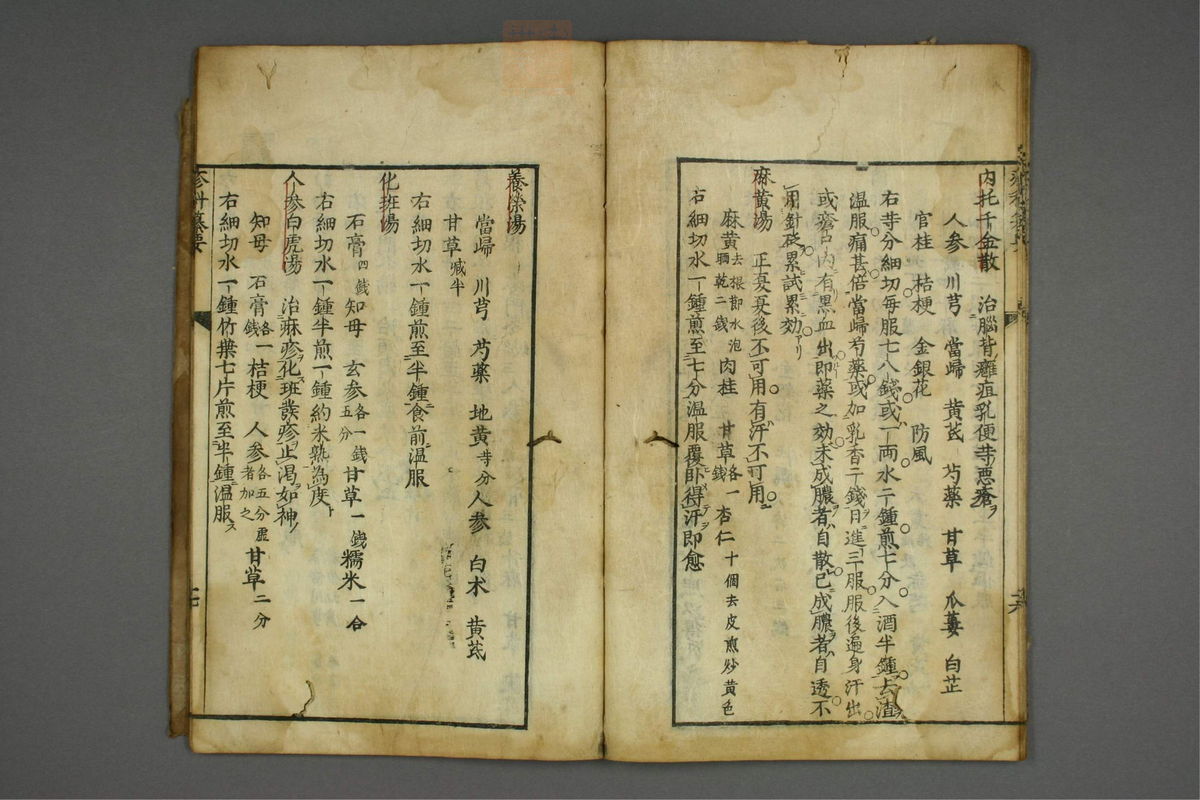 内托千金散　治腦背癰疽乳便等悪瘡ヲ
人参　川芎　當歸　黄芪　芍藥　甘草　瓜蔞　白芷
官桂　桔梗　金銀花　防風
右等分細切毎服七八錢或一両水二鍾煎七分入酒半鍾去渣
温服痛甚倍當歸芍藥或加乳香二錢日進三服服後遍身汗出
或瘡口内有黒血出即藥之効未成膿者自散已成膿者自透不
用針砭累試累効アリ
麻黄湯　正夏夏後不可用有汗不可用
麻黄去根節水泡晒乾二錢　肉桂　甘草各一錢　杏仁十個去皮煎炒黄色
右細切水一鍾煎至七分温服覆卧得汗即愈
養榮湯
當歸　川芎　芍藥　地黄等分　人参　白术　黄芪
甘草减半
右細切水一鍾煎至半鍾食前温服
化班湯
石膏四錢　知母　玄参各一錢五分　甘草一錢　糯米一合
右細切水一鍾半煎一鍾約米熟為度
人参白虎湯　治痳疹化班發疹止渇如神
知母　石膏各一錢　桔梗　人参各五分虚者加之　甘草二分
右細切水一鍾竹葉七片煎至半鍾温服ス